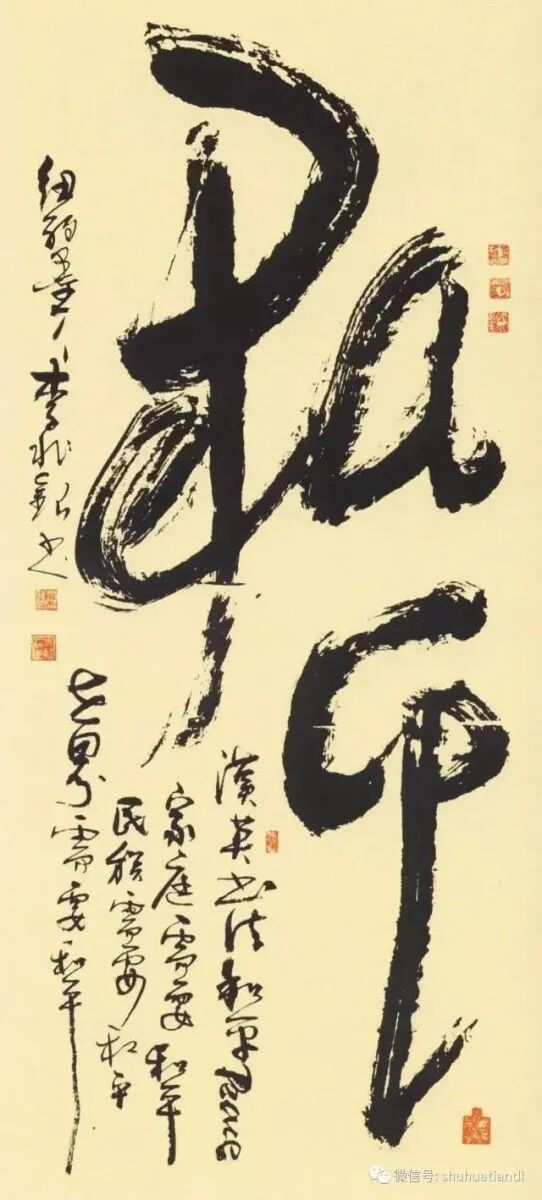 和平
漢英书法和平Peace
家庭需要和平
民族需要和平
世界需要和平
李兆银书
微信号: shuhuatiandi